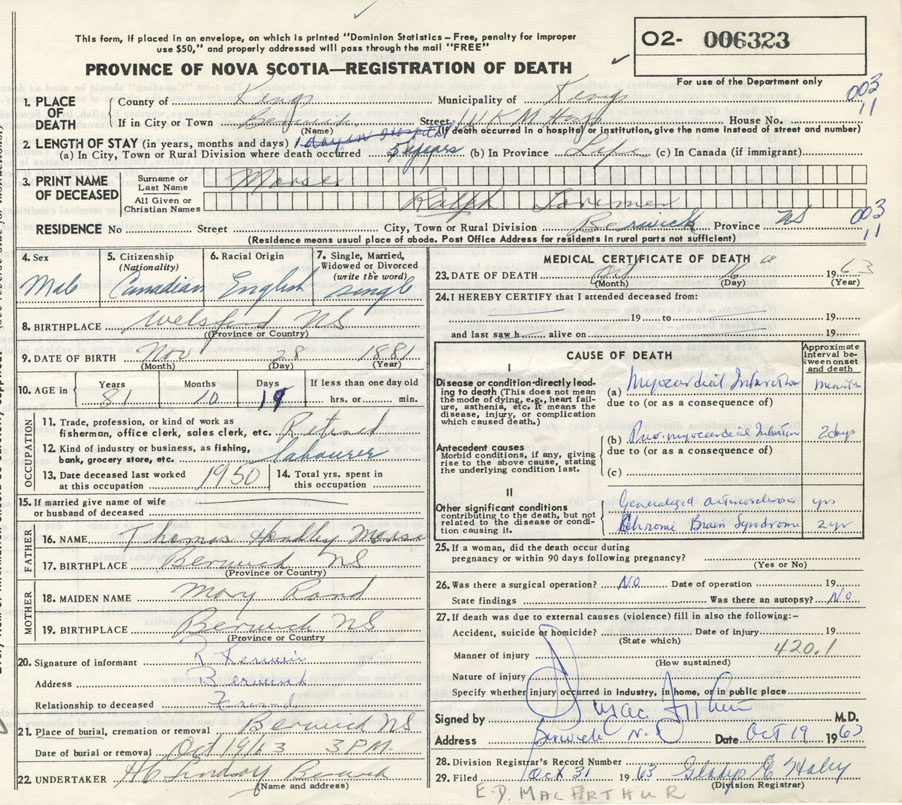 This form, if placed in an envelope, on which is printed "Dominion Statistics - Free, penalty for improper
use $50," and properly addressed will pass through the mail "FREE"
O2- 006323
For use of the Department only
PROVINCE OF NOVA SCOTIA—REGISTRATION OF DEATH
003
11
1. PLACE OF DEATH
County of Kings Municipality of Kings
If in City or Town Berwick Street W K M Hosp House No.
(Name) (If death occurred in a hospital or institution, give the name instead of street and number)
1 day in hospital
2. LENGTH OF STAY (in years, months and days)
(a) In City, Town or Rural Division where death occurred 5 years (b) In Province Life (c) In Canada (if immigrant)
3. PRINT NAME OF DECEASED
Surname or Last Name Morse
All Given or Christian Names Ralph
RESIDENCE No Street City, Town or Rural Division Berwick Province NS
003
11
(Residence means usual place of abode. Post Office Address for residents in rural parts not sufficient)
4. Sex Male
5. Citizenship (Nationality) Canadian
6. Racial Origin English
7. Single, Married, Widowed or Divorced (write the word) single
8. BIRTHPLACE Welsford NS
(Province or Country)
9. DATE OF BIRTH Nov 28 1881
(Month) (Day) (Year)
10. AGE in Years 81 Months 10 Days 19 If less than one day old hrs. or min.
OCCUPATION
11. Trade, profession, or kind of work as fisherman, office clerk, sales clerk, etc. Retired
12. Kind of industry or business, as fishing, bank, grocery store, etc. Labourer
13. Date deceased last worked at this occupation 1950
14. Total yrs. spent in this occupation
15. If married give name of wife or husband of deceased
FATHER
16. NAME Thomas Handley Morse
17. BIRTHPLACE Berwick NS
(Province or Country)
MOTHER
18. MAIDEN NAME Mary Rand
19. BIRTHPLACE Berwick NS
(Province or Country)
20. Signature of informant
Address Berwick
Relationship to deceased Friend
21. Place of burial, cremation or removal Berwick NS
Date of burial or removal Oct 19/63 3 P.M.
22. UNDERTAKER Lindsay Berwick
(Name and address)
MEDICAL CERTIFICATE OF DEATH
23. DATE OF DEATH Oct 16 1963
(Month) (Day) (Year)
24. I HEREBY CERTIFY that I attended deceased from:
19 to 19
and last saw h alive on 19
CAUSE OF DEATH
Approximate interval between onset and death
I
Disease or condition directly leading to death (This does not mean the mode of dying, e.g., heart failure, asthenia, etc. It means the disease, injury, or complication which caused death.)
(a) Myocardial Infarction minutes
due to (or as a consequence of)
Antecedent causes
Morbid conditions, if any, giving rise to the above cause, stating the underlying condition last.
(b) myocardial Infarction 2 days
due to (or as a consequence of)
(c)
II
Other significant conditions contributing to the death, but not related to the disease or condition causing it.
Generalized arteriosclerosis yrs
Chronic Brain Syndrome 2 yr
25. If a woman, did the death occur during pregnancy or within 90 days following pregnancy?
(Yes or No)
26. Was there a surgical operation? No Date of operation 19
State findings Was there an autopsy? No
27. If death was due to external causes (violence) fill in also the following:-
Accident, suicide or homicide? Date of injury 19
(State which)
420.1
Manner of injury
(How sustained)
Nature of injury
Specify whether injury occurred in Industry, in home, or in public place
Signed by M.D.
Address Berwick N.S Date Oct 19 1963
28. Division Registrar's Record Number
29. Filed Oct 31 1963 Gladys E
(Division Registrar)
E D. MACARTHUR